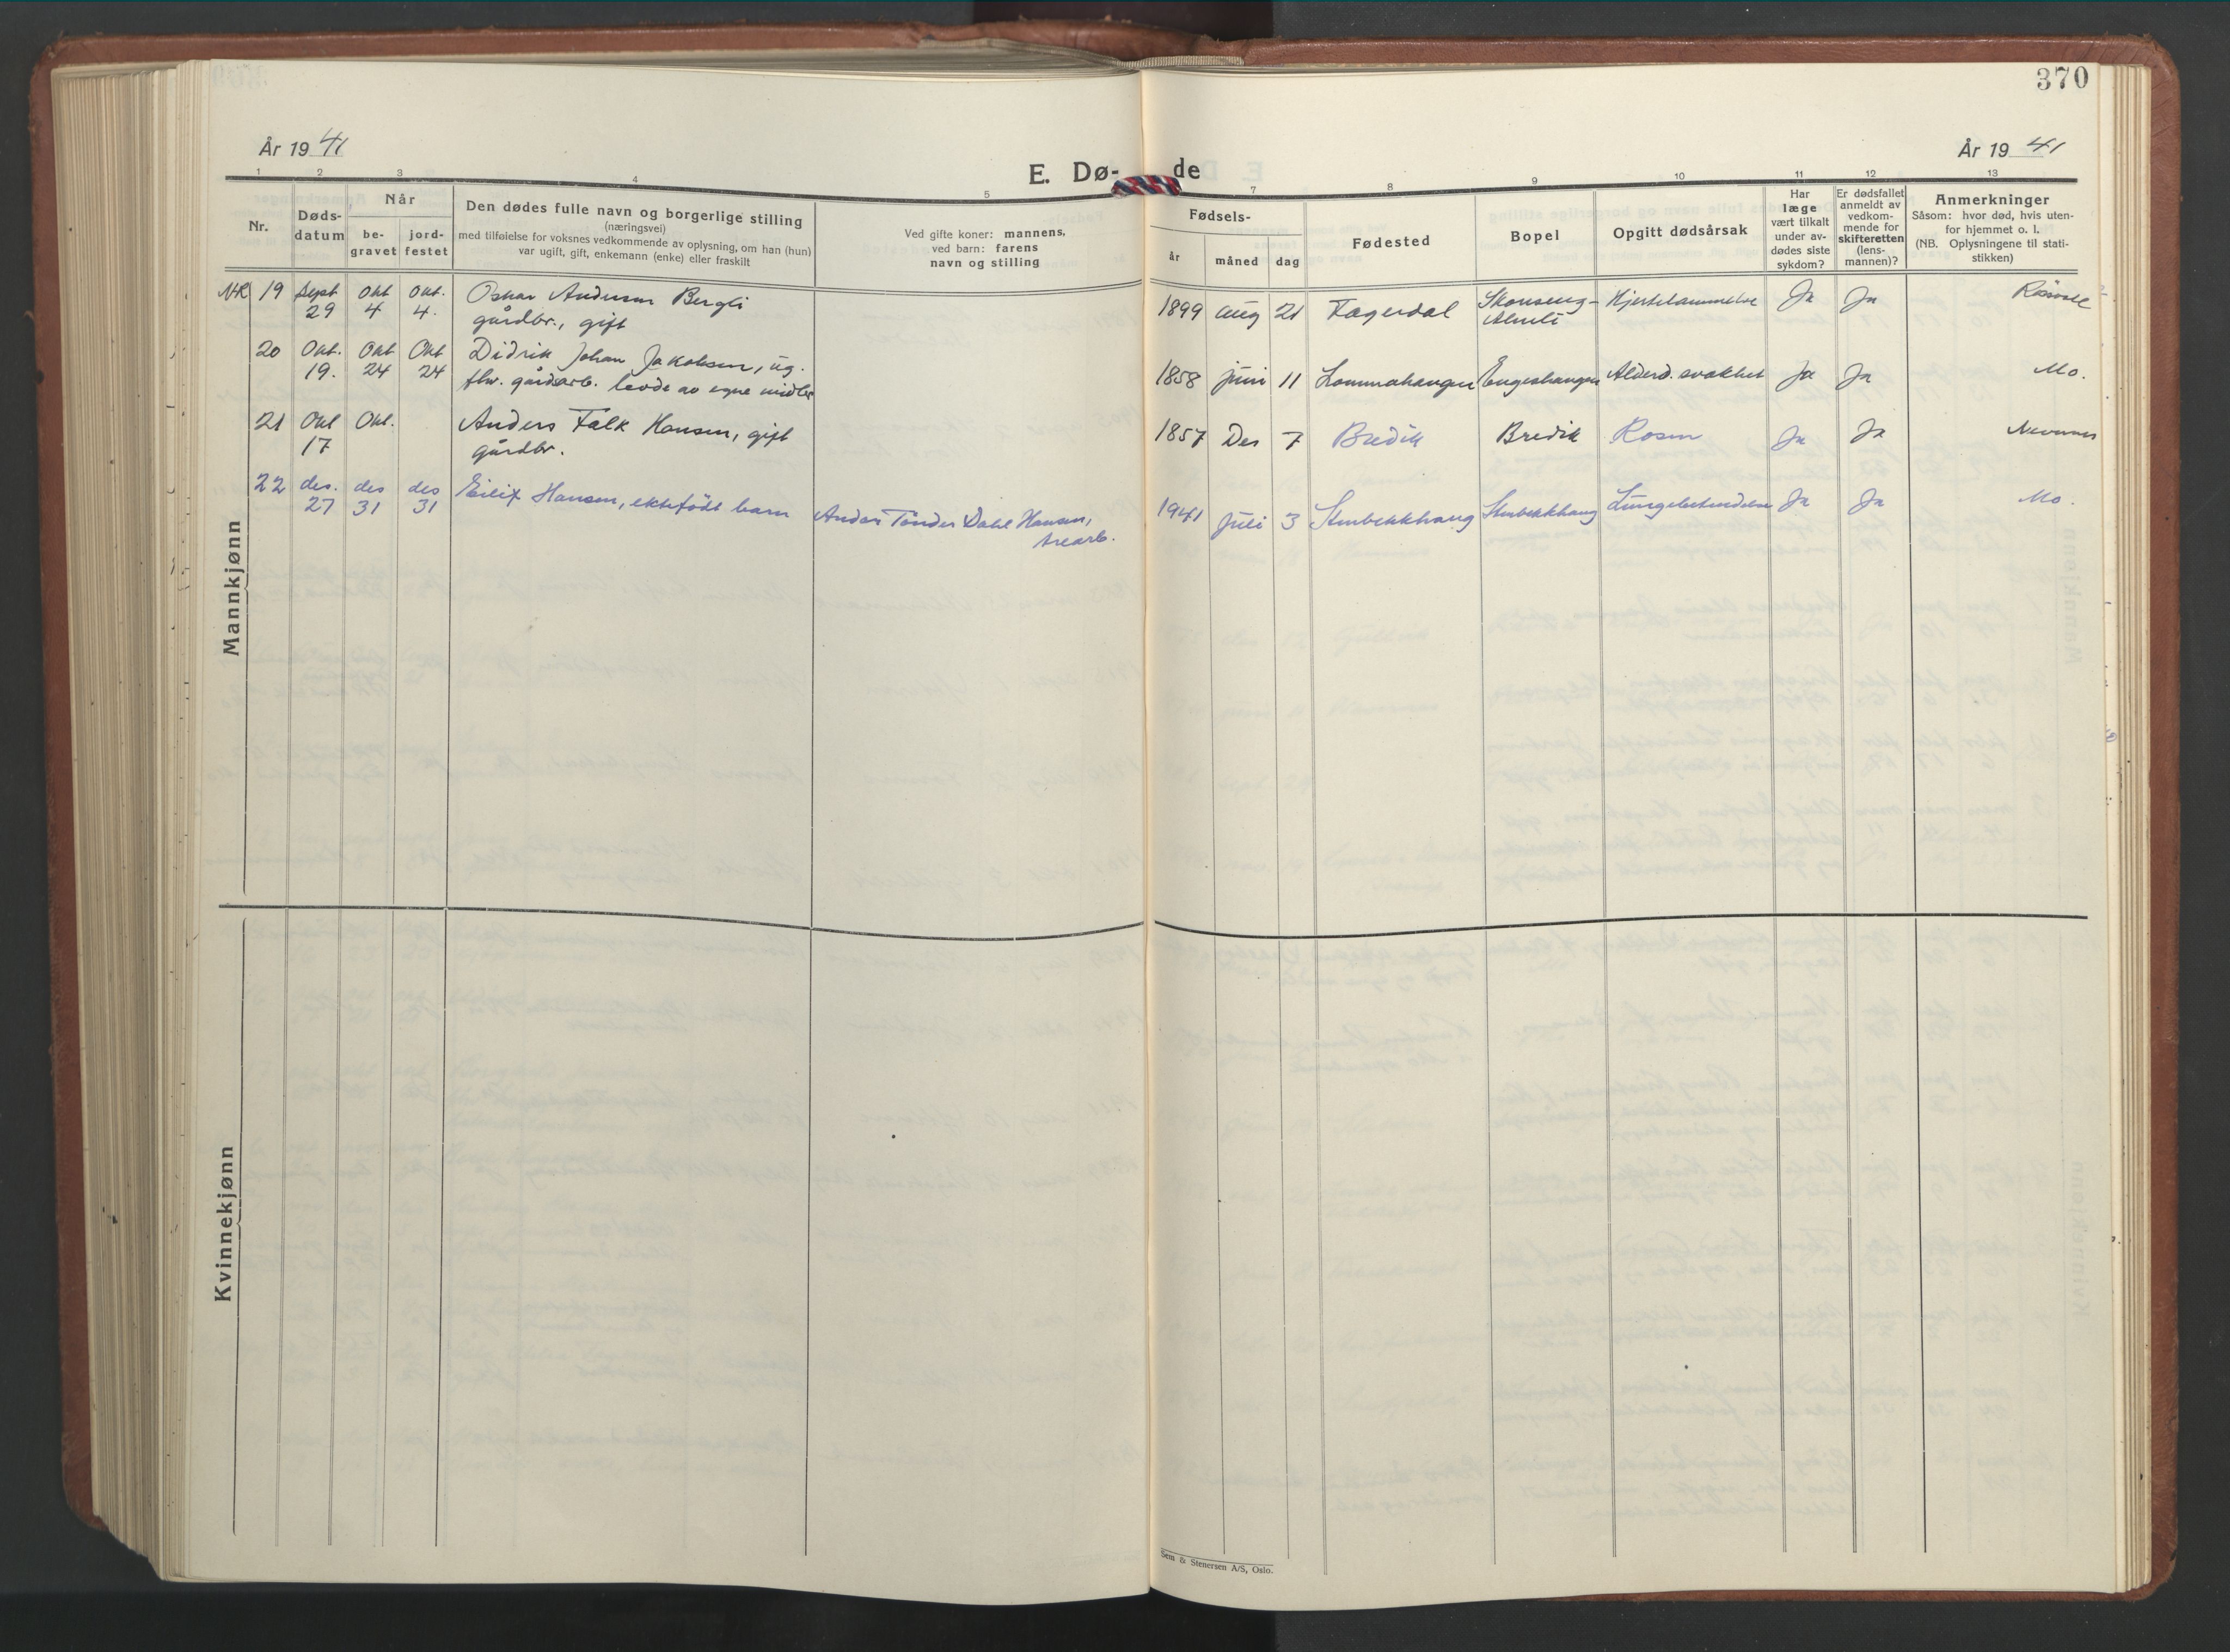 370
År 19 41
År 19 41
E. Dø- de
1 2 3 4 5 7 8 9 10 11 12 13
Nr.
Døds-
datum
Når
be-
gravet
jord-
festet
Den dødes fulle navn og borgerlige stilling
(næringsvei)
med tilføielse for voksnes vedkommende av oplysning, om han (hun)
var ugift, gift, enkemann (enke) eller fraskilt
Ved gifte koner: mannens,
ved barn: farens
navn og stilling
Fødsels-
år
måned
dag
Fødested
Bopel
Opgitt dødsårsak
Har
læge
vært tilkalt
under av-
dødes siste
sykdom?
Er dødsfallet
anmeldt av
vedkom-
mende for
skifteretten
(lens-
mannen)?
Anmerkninger
Såsom: hvor død, hvis uten-
for hjemmet o. l.
(NB. Oplysningene til stati-
stikken)
Mannkjønn
19 Sept Okt Okt. Oskar Andersen Bergli
29 4 4. gårdbr., gift
1899 Aug 21 Fagerdal Skonseng- Hjertelammelse Ja Ja
20 Okt. Okt Okt Didrik Johan Jakobsen, ug.
19. 24 24 fhv. gårdsarb. levde av egne midler
1858 juni 11 Lommahaugen Engeshaugen Alderd. svakhet Ja Ja Mo.
21 Okt Okt. Anders Falk Hansen, gift
17 gårdbr.
1857 Des 7 Bredik Bredik Rosen Ja Ja Nevernes
22 des. des des Eilif Hansen, ektefödt barn
27 31 31
Anders Tönder Dahl Hansen,
1941 Juli 3 Stenbekkhaug Stenbekkhaug Lungebetendelse Ja Ja Mo.
Kvinnekjønn
Sem & Stenersen A/S, Oslo.